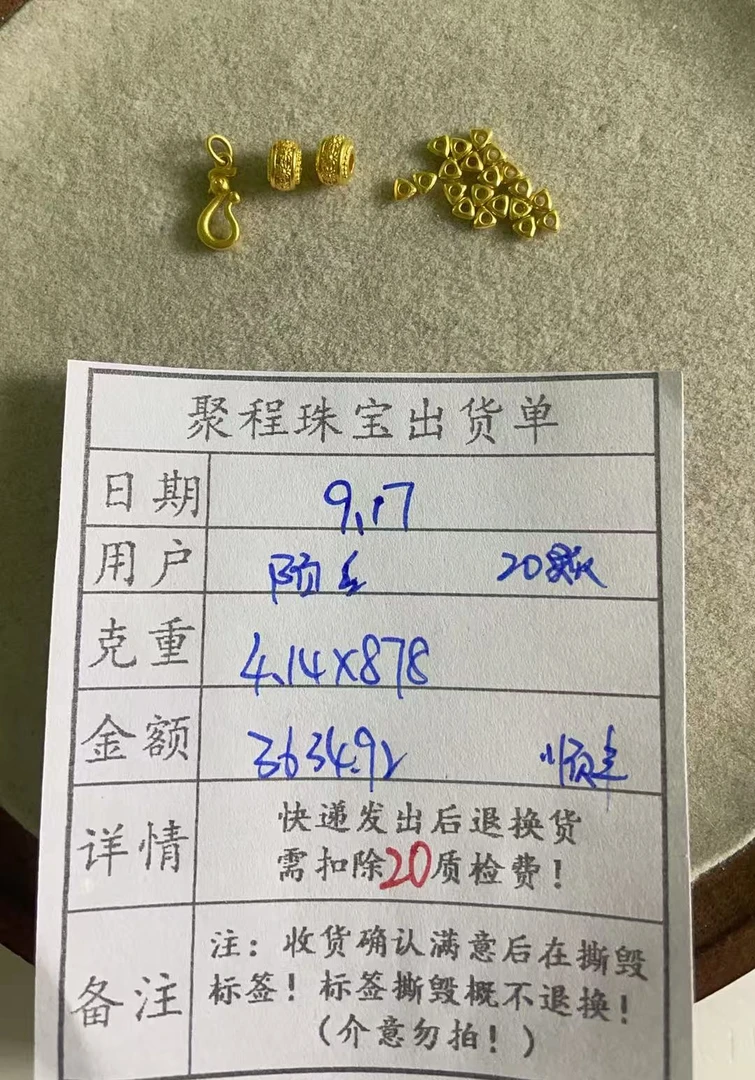 聚程珠宝出货单
日期 9.17
用户 20颗
克重 4.14×878
金额 3634.92 顺丰
详情 快递发出后退换货
需扣除20质检费！
备注 注：收货确认满意后在撕毁
标签！标签撕毁概不退换！
（介意勿拍！）